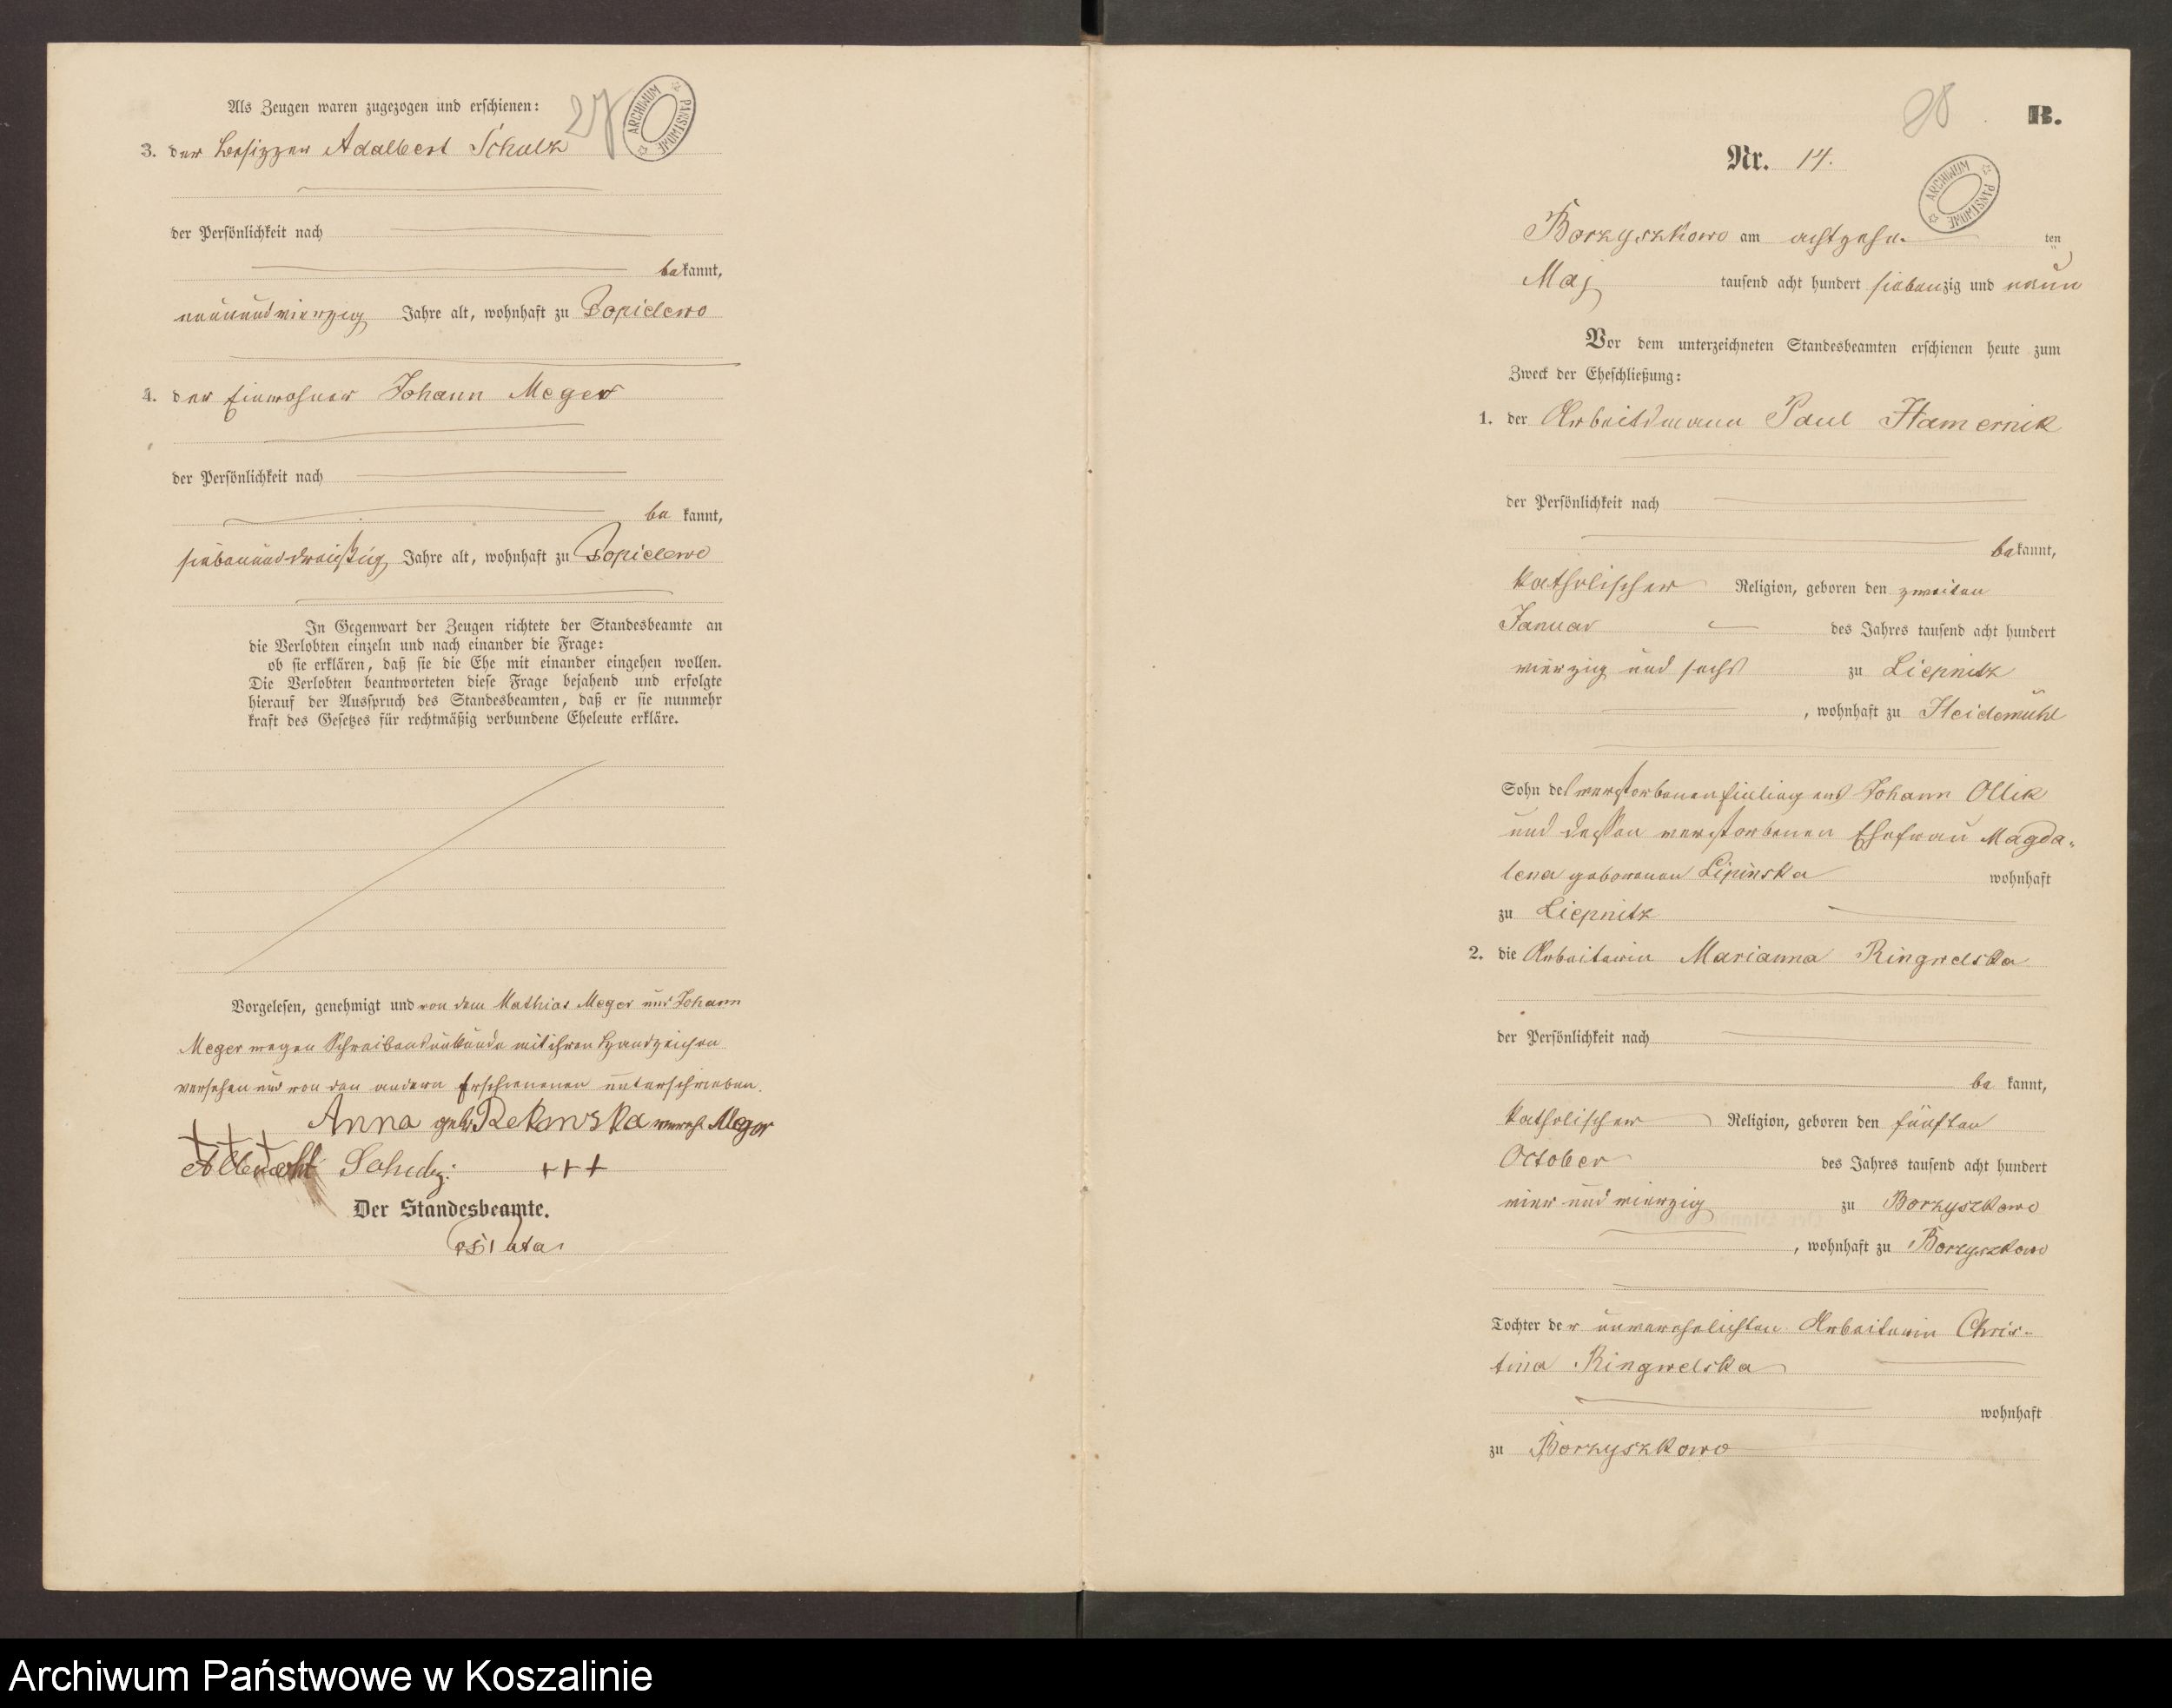 Als Zeugen waren zugezogen und erschienen:
27
ARCHIWUM PAŃSTWOWE
3. der Besitzer Adalbert Schulz
der Persönlichkeit nach
bekannt,
neunundvierzig Jahre alt, wohnhaft zu Sopidlewo
4. der Einwohner Johann Meger
der Persönlichkeit nach
be kannt,
siebenunddreißig Jahre alt, wohnhaft zu
In Gegenwart der Zeugen richtete der Standesbeamte an
die Verlobten einzeln und nach einander die Frage:
ob sie erklären, daß sie die Ehe mit einander eingehen wollen.
Die Verlobten beantworteten diese Frage bejahend und erfolgte
hierauf der Ausspruch des Standesbeamten, daß er sie nunmehr
kraft des Gesetzes für rechtmäßig verbundene Eheleute erkläre.
Vorgelesen, genehmigt und von dem Mathias Meger und Johann
Meger wegen Schreibensunkunde mit ihren Handzeichen
versehen und von den andern Erschienenen unterschrieben.
Anna geb. Rekowska verehl Meger
+ + +
Albrecht Schulz. + + +
Der Standesbeamte.
98 B.
Nr. 14.
ARCHIWUM PAŃSTWOWE
Borzyszkowo am achtzehn- ten
Maj tausend acht hundert siebenzig und neun
Vor dem unterzeichneten Standesbeamten erschienen heute zum
Zweck der Eheschließung:
1. der Arbeitsmann Paul Hamernik
der Persönlichkeit nach
bekannt,
katholischer Religion, geboren den zweiten
Januar des Jahres tausend acht hundert
vierzig und sechs zu Liepnitz
, wohnhaft zu Heidemühl
Sohn des verstorbenen Einliegers Johann Ollik
und dessen verstorbenen Ehefrau Magda-
lena geborenen Lipinska wohnhaft
zu Liepnitz
2. die Arbeiterin Marianna Ringwelska
der Persönlichkeit nach
be kannt,
katholischer Religion, geboren den fünften
October des Jahres tausend acht hundert
vier und vierzig zu Borzyszkowo
, wohnhaft zu Borzyszkowo
Tochter der unverehelichten Arbeiterin Chris-
tina Ringwelska
wohnhaft
zu Borzyszkowo
Archiwum Państwowe w Koszalinie